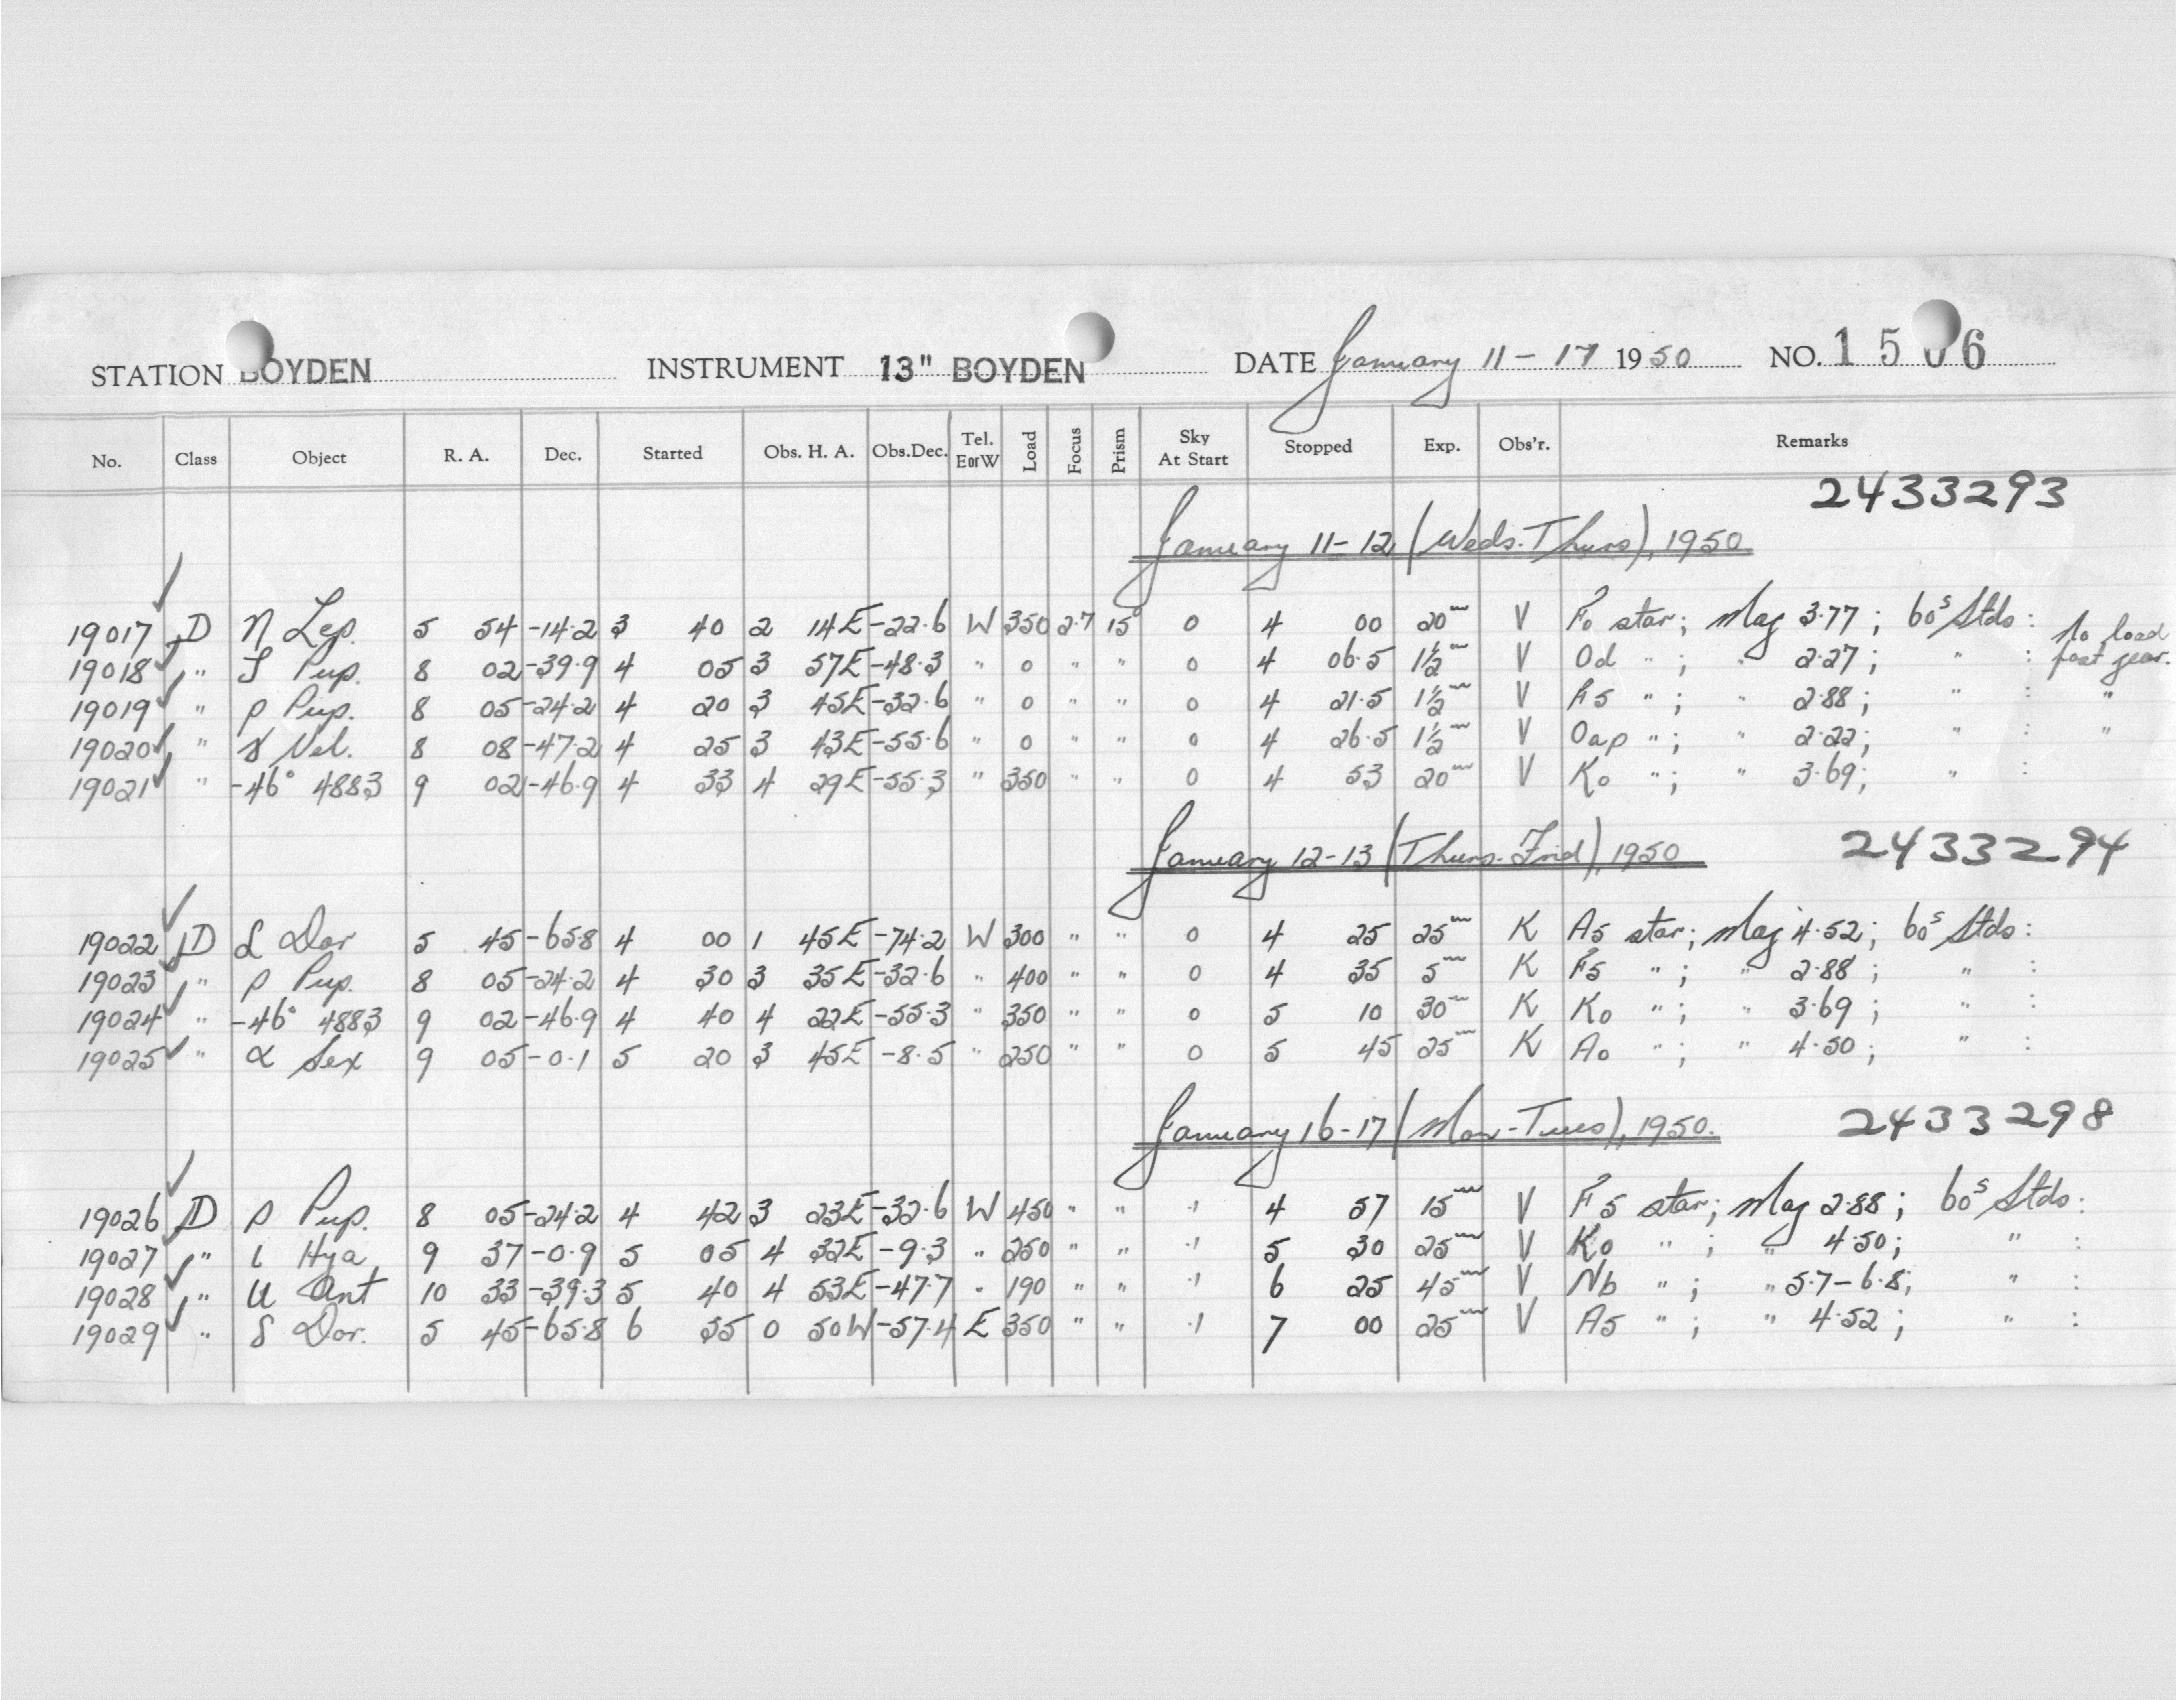 STATION BOYDEN INSTRUMENT 13" BOYDEN DATE January 11-17 1950 NO. 1506
No. Class Object R. A. Dec. Started Obs. H. A. Obs.Dec. Tel. EorW Load Focus Prism Sky At Start Stopped Exp. Obs'r. Remarks
2433293
January 11-12 (Weds-Thurs), 1950
19017 D η Lep. 5 54 -14.2 3 40 2 14E -22.6 W 350 2.7 15° 0 4 00 20m V F0 star; Mag 3.77; 60s Stds:
19018 " ζ Pup. 8 02 -39.9 4 05 3 57E -48.3 " 0 " " 0 4 06.5 1½m V Od "; " 2.27; " : No load fast gear.
19019 " ρ Pup. 8 05 -24.2 4 20 3 45E -32.6 " 0 " " 0 4 21.5 1½m V F5 "; " 2.88; " : "
19020 " γ Vel. 8 08 -47.2 4 25 3 43E -55.6 " 0 " " 0 4 26.5 1½m V Oap "; " 2.22; " : "
19021 " -46° 4883 9 02 -46.9 4 33 4 29E -55.3 " 350 " " 0 4 53 20m V K0 "; " 3.69; " :
January 12-13 (Thurs-Frid), 1950 2433294
19022 D δ Dor 5 45 -65.8 4 00 1 45E -74.2 W 300 " " 0 4 25 25m K A5 star; Mag 4.52; 60s Stds:
19023 " ρ Pup. 8 05 -24.2 4 30 3 35E -32.6 " 400 " " 0 4 35 5m K F5 "; " 2.88; " :
19024 " -46° 4883 9 02 -46.9 4 40 4 22E -55.3 " 350 " " 0 5 10 30m K K0 "; " 3.69; " :
19025 " α Sex 9 05 -0.1 5 20 3 45E -8.5 " 250 " " 0 5 45 25m K A0 "; " 4.50; " :
January 16-17 (Mon-Tues), 1950. 2433298
19026 D ρ Pup. 8 05 -24.2 4 42 3 23E -32.6 W 450 " " .1 4 57 15m V F5 star; Mag 2.88; 60s Stds:
19027 " ι Hya 9 37 -0.9 5 05 4 32E -9.3 " 250 " " .1 5 30 25m V K0 "; " 4.50; " :
19028 " U Ant 10 33 -39.3 5 40 4 53E -47.7 " 190 " " .1 6 25 45m V Nb "; " 5.7-6.8; " :
19029 " δ Dor. 5 45 -65.8 6 35 0 50W -57.4 E 350 " " .1 7 00 25m V A5 "; " 4.52; " :